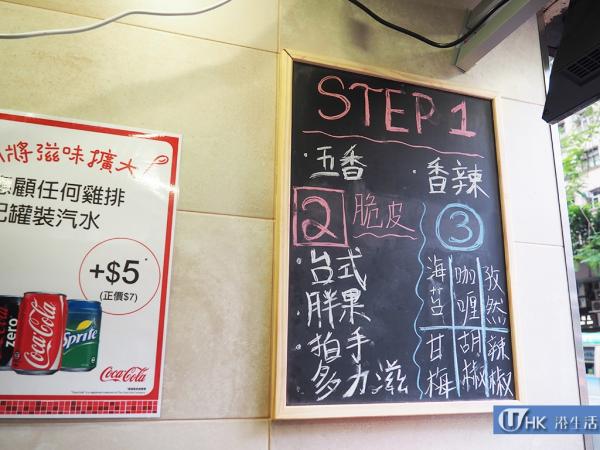 將滋味擴大
顧任何雞排
罐裝汽水
+$5
(正價$7)
zero
Coca-Cola
Sprite
Coca-Cola
STEP 1
·五香
·香辣
2 脆皮
3
·台式
·胖果
·拍手
·多力滋
海苔
咖哩
孜然
甘梅
胡椒
辣椒
U HK 港生活